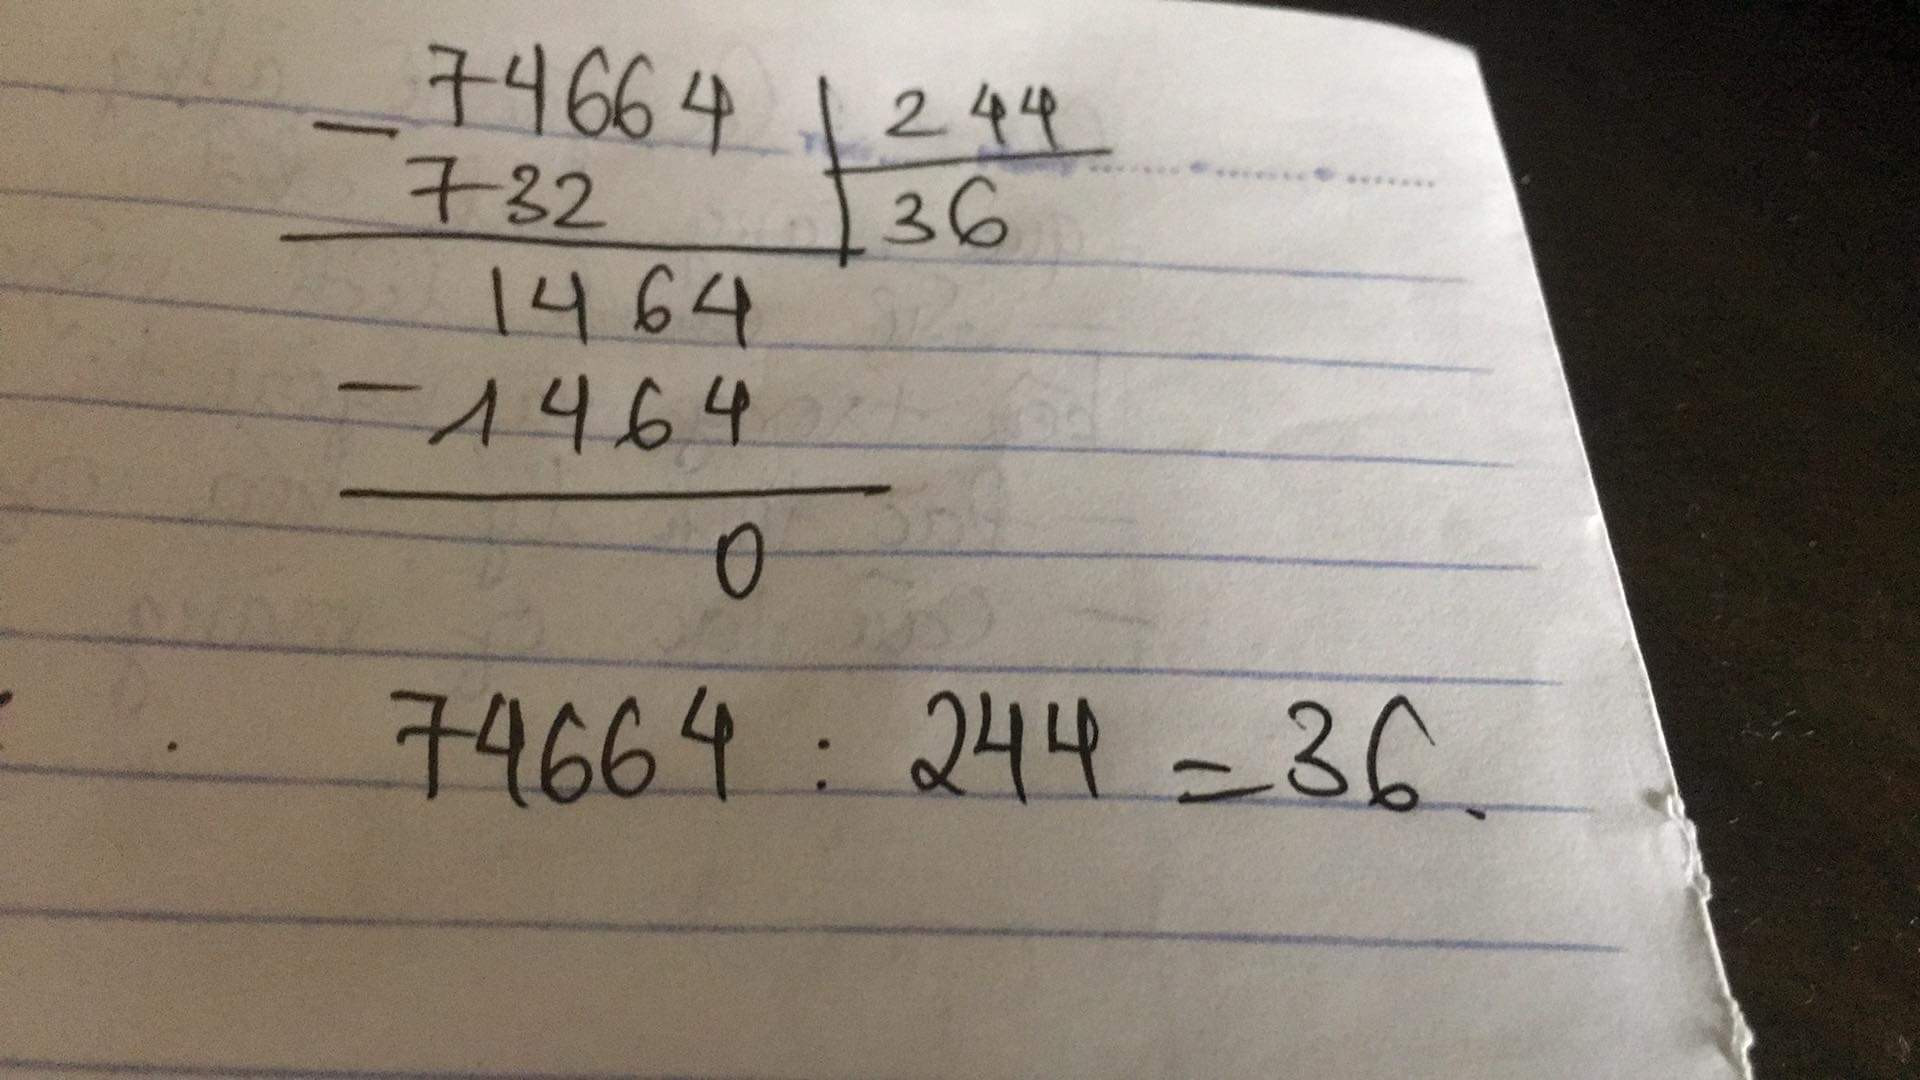 74664 | 244
- 732 | 36
1464
- 1464
0
74664 : 244 = 36.